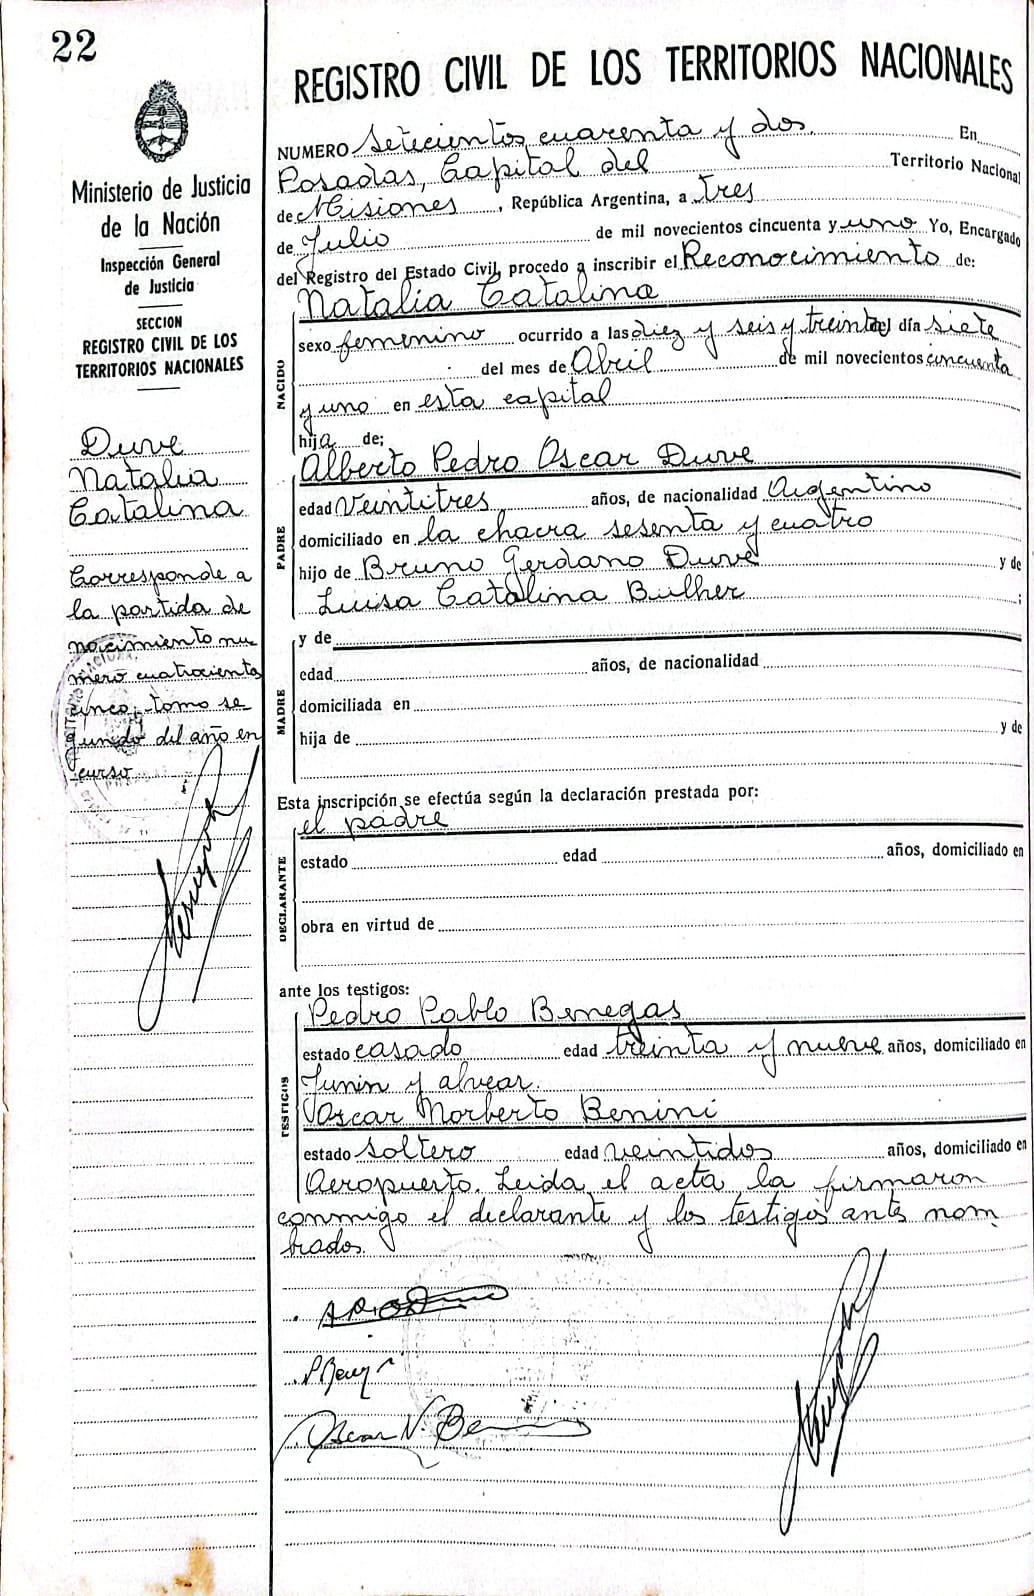 22
REGISTRO CIVIL DE LOS TERRITORIOS NACIONALES
Ministerio de Justicia
de la Nación
Inspección General
de Justicia
SECCION
REGISTRO CIVIL DE LOS
TERRITORIOS NACIONALES
Duve
Natalia
Catalina
Corresponde a
la partida de
nacimiento nu-
mero cuatrocientos
cinco, tomo se
gundo del año en
curso
NUMERO Setecientos cuarenta y dos En
Posadas, Capital del Territorio Nacional
de Misiones, República Argentina, a tres
de Julio de mil novecientos cincuenta y uno Yo, Encargado
del Registro del Estado Civil, procedo a inscribir el Reconocimiento de:
NACIDO
Natalia Catalina
sexo femenino ocurrido a las diez y seis y treinta del día siete
del mes de Abril de mil novecientos cincuenta
y uno en esta capital
hija de:
PADRE
Alberto Pedro Oscar Duve
edad Veintitres años, de nacionalidad Argentino
domiciliado en la chacra sesenta y cuatro
hijo de Bruno Gerdano Duve y de
Luisa Catalina Bulher ;
MADRE
y de
edad años, de nacionalidad
domiciliada en
hija de y de
Esta inscripción se efectúa según la declaración prestada por:
DECLARANTE
el padre
estado edad años, domiciliado en
obra en virtud de
ante los testigos:
TESTIGOS
Pedro Pablo Benegas
estado casado edad treinta y nueve años, domiciliado en
Junin y alvear.
Oscar Norberto Benini
estado soltero edad veintidos años, domiciliado en
Aeropuerto. Leida el acta la firmaron
conmigo el declarante y los testigos antes nom
brados.
Oscar N. Benini